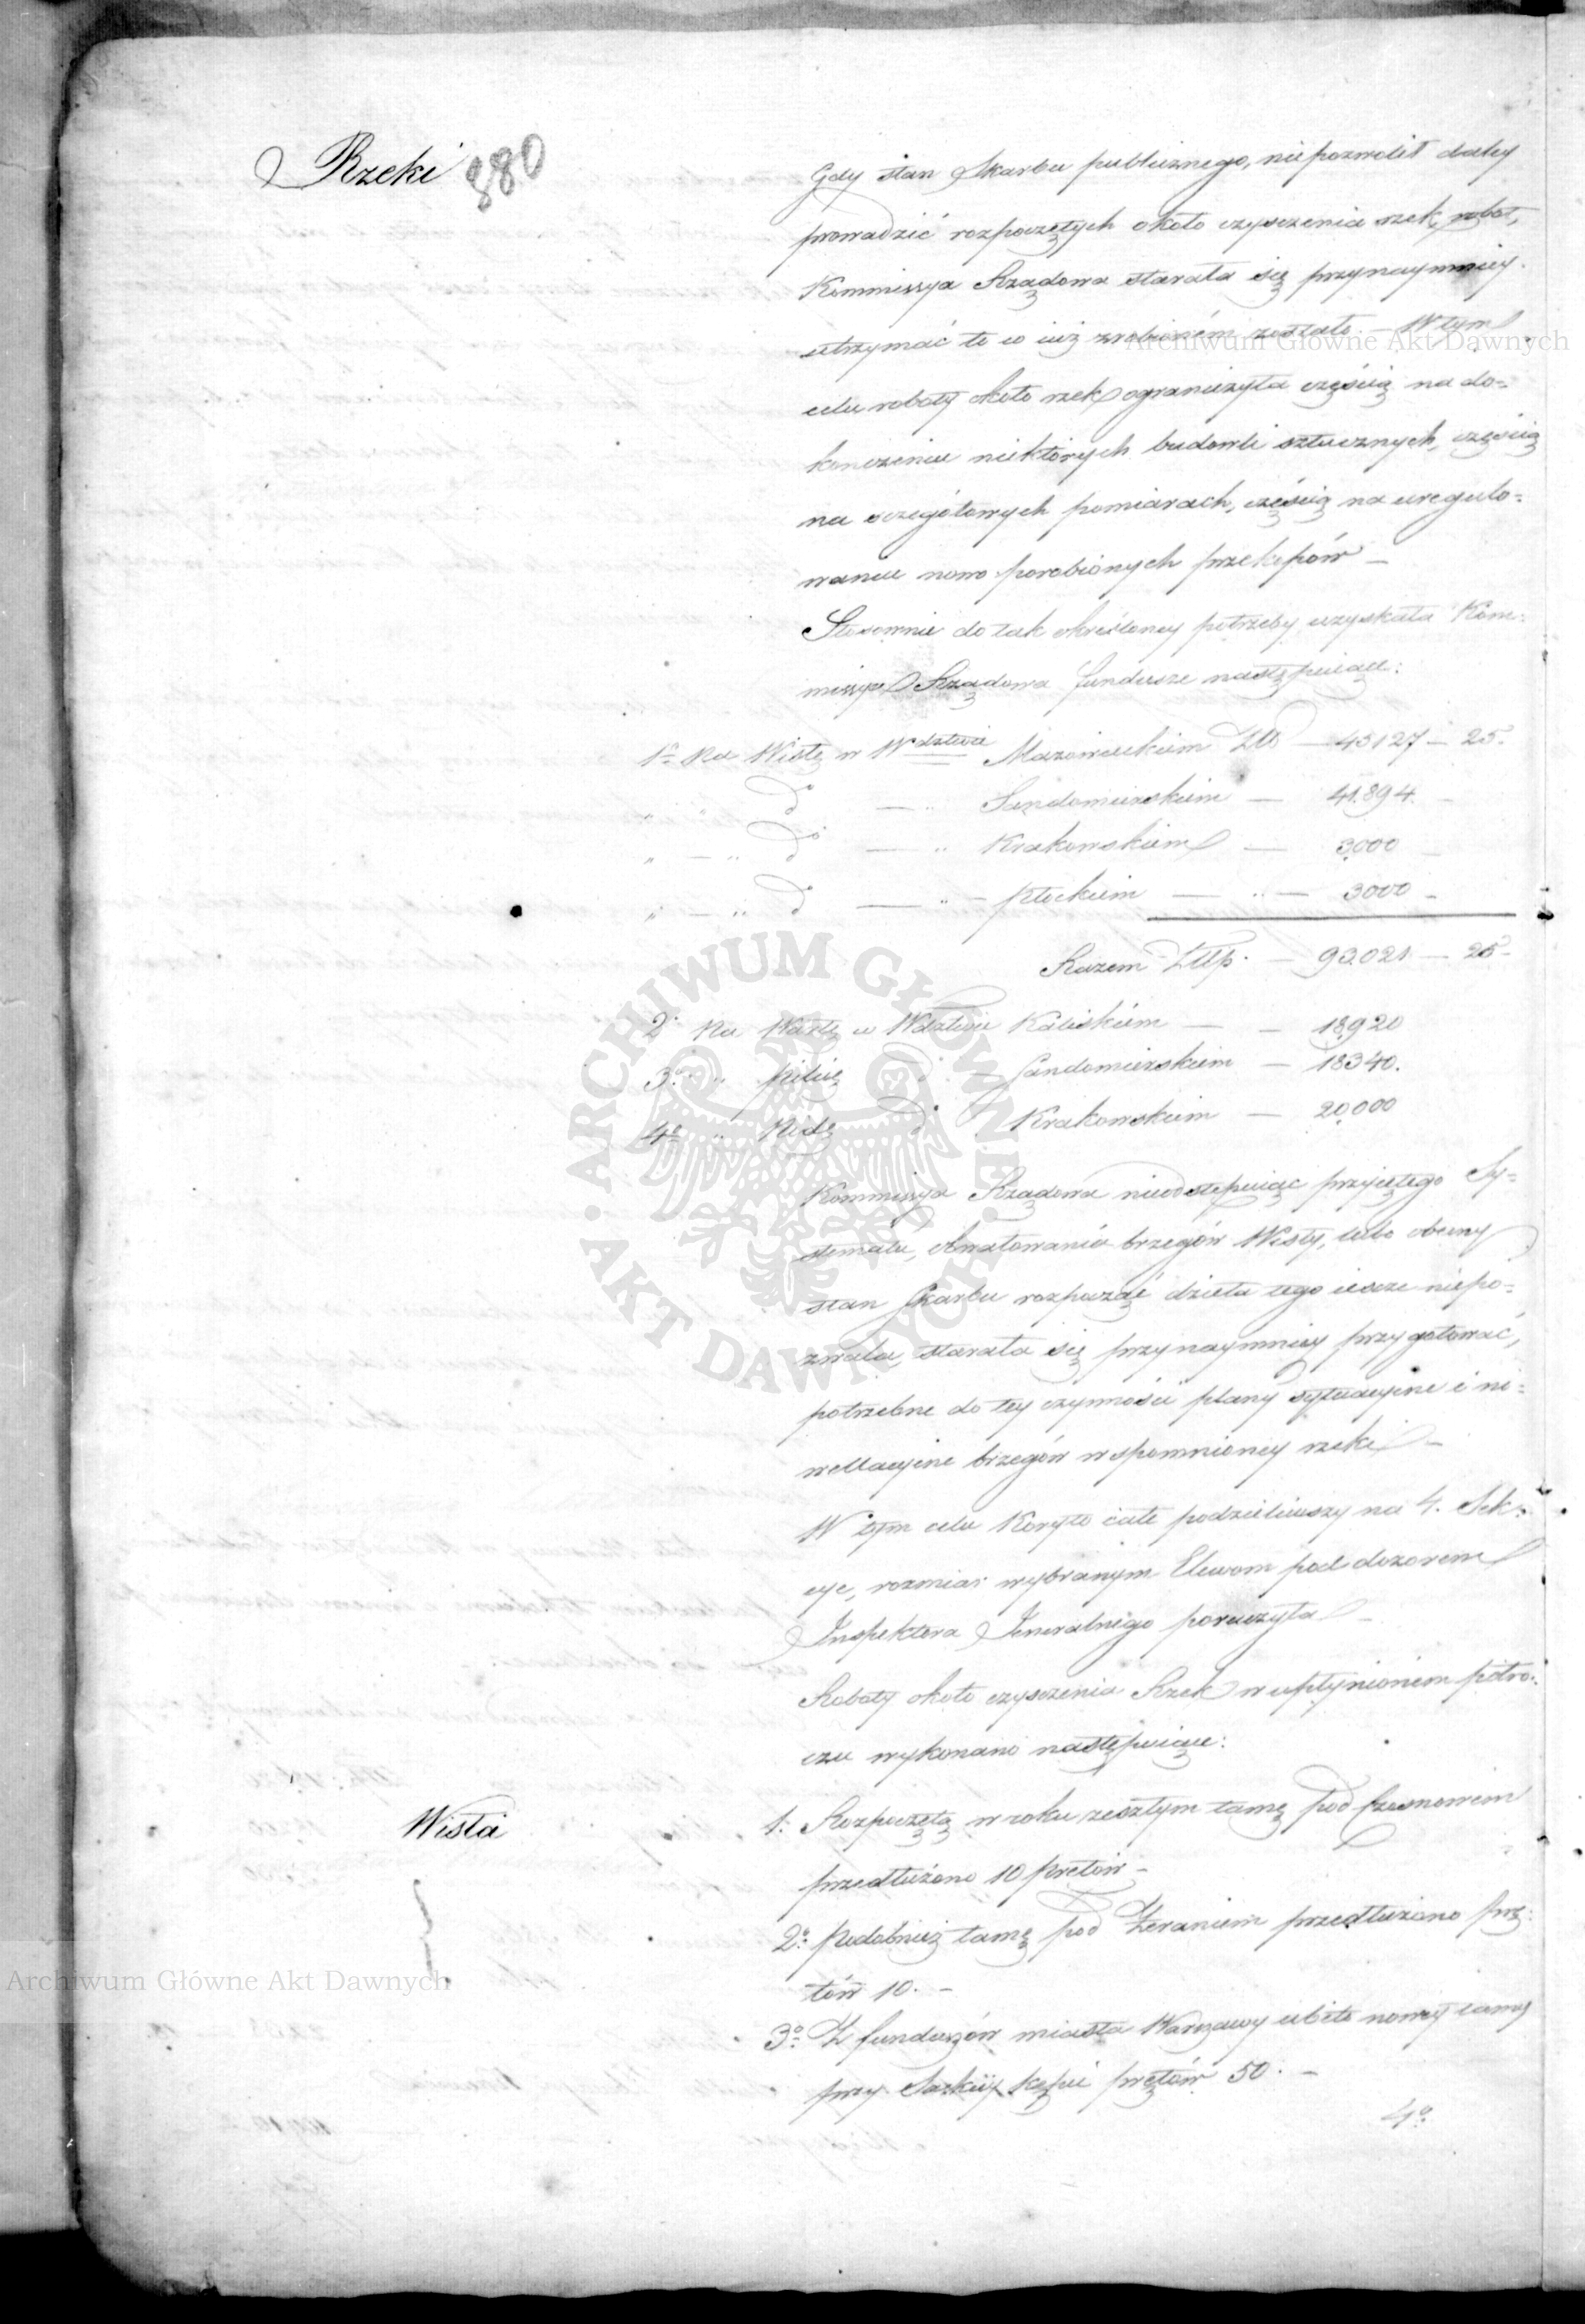 Rzeki 880
Gdy stan Skarbu publicznego, niepozwolił daley
prowadzić rozpoczętych około czyszczenia rzek, robot,
Kommissya Rządowa starała się przynaymniey
utrzymać to co iuż zrobioném zostało. – W tym
celu roboty około rzek ograniczyła częścią na do=
kończeniu niektórych budowli sztucznych, częścią
na szczegółowych pomiarach, częścią na uregulo=
waniu nowo porobionych przekopów –
Stosownie do tak określoney potrzeby uzyskała Kom=
missya Rządowa fundusze następuiące:
1o Na Wisłę w Wdztwie Mazowieckim Zł – 45127 – 25.
" " do — " Sandomierskim — 41.894. –
" – " do — " Krakowskim — 3000 –
" – " do — " – Płockim — " — 3000 –
Razem Złłp. – 93.021 – 25 –
2o Na Wartę w Wdztwie Kaliskim — – 18,920
3o " Pilicę do – Sandomierskim — 18340.
4o " Nidę do . Krakowskim — 20,000
Kommissya Rządowa nieodstępuiąc przyiętego Sy=
stematu, obwałowania brzegów Wisły, lubo obecny
stan Skarbu rozpocząć dzieła tego ieszcze niepo=
zwala, starała się przynaymniey przygotować,
potrzebne do tey czynności plany sytuacyine i ni=
wellacyine brzegów wspomnioney rzeki –
W tym celu Koryto całe podzieliwszy na 4. Sek=
cye, rozmiar wybranym Elewom pod dozorem
Inspektora Jeneralnego poruczyła –
Roboty około czyszczenia Rzek w upłynioném półro=
czu wykonano następuiące:
Wisła
1. Rozpoczętą w roku zeszłym tamę pod Czosnowem
przedłużono 10 prętów –
2o Podobnież tamę pod Żeraniem przedłużono prę=
tów 10. –
3o Z funduszów miasta Warszawy ubito nowey tamy
przy Saskiey Kępie prętów 50. –
4o
Archiwum Główne Akt Dawnych
ARCHIWUM GŁÓWNE · AKT DAWNYCH ·
Archiwum Główne Akt Dawnych